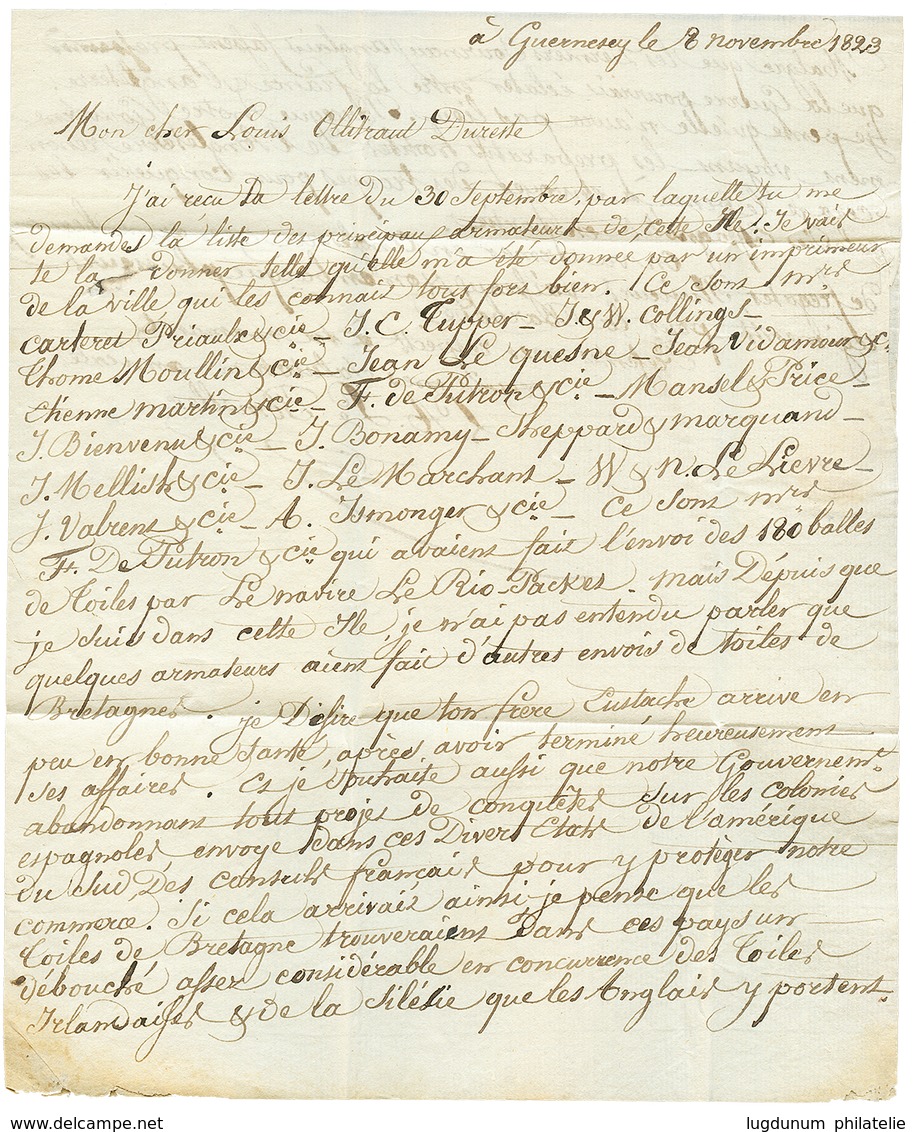 à Guernesey le 8 novembre 1823
Mon cher Louis Ollitraut Dureste
J'ai reçu ta lettre du 30 Septembre, par laquelle tu me
demandes la liste des principaux armateurs de cette Ile. Je vais
te la donner telle qu'elle m'a été donnée par un imprimeur
de la ville qui les connait tous fort bien. Ce sont mrs
carteret Priaulx & cie – J. C. Tupper – J & W. Collings –
Thome Moullin & cie – Jean Le quesne – Jean Vidamour & c.
Etienne martin & cie – F. de Putron & cie – Mansel & Price –
J. Bienvenu & cie – J. Bonamy – Sheppard & marquand –
J. Mellish & cie – J. Le Marchant – W & N. Le Lievre –
J. Valrent & cie – A. Ismonger & cie – Ce sont mrs
F. De Putron & cie qui avaient fait l'envoi des 180 balles
de Toiles par Le navire Le Rio-Packet. mais Depuis que
je suis dans cette Ile, je n'ai pas entendu parler que
quelques armateurs aient fait d'autres envois de toiles de
Bretagnes. je Désire que ton frère Eustache arrive en
peu en bonne santé, après avoir terminé heureusement
ses affaires. Et je souhaite aussi que notre Gouvernemt.
abandonnant tout projet de conquêtes sur les colonies
espagnoles envoye dans ces Divers Etats de l'amérique
du Sud, Des consuls français pour y protéger notre
commerce. Si cela arrivait ainsi je pense que les
toiles de Bretagne trouveraient Dans ces pays un
débouché assez considérable en concurrence des Toiles
Irlandaises & De la Silésie que les Anglais y portent.
lugdunum philatelie
www.delcampe.net